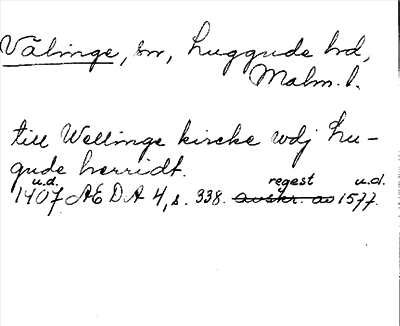 Välinge, sn, Luggude hd,
Malm. l.
till Wellinge kircke wdj Lu-
gude herridt.
u.d. regest u.d.
1407 ÆDA 4, s. 338. avskr. av 1577.